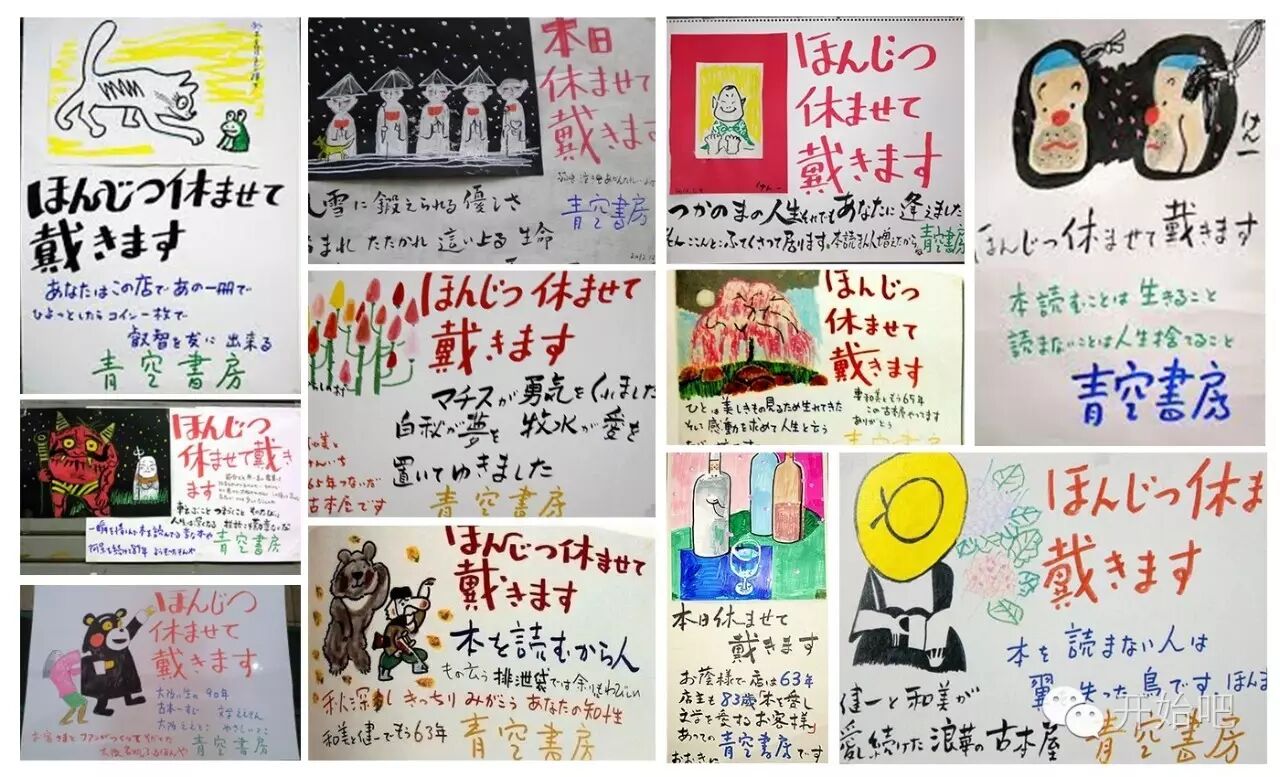 ほんじつ休ませて
戴きます
あなたはこの店であの一冊で
ひょっとしたらコイン一枚で
叡智を友に出来る
青空書房
本日
休ませて
戴きます
雪に鍛えられる優しさ
まれ たたかれ 這い上る 生命
青空書房
ほんじつ
休ませて
戴きます
つかのまの人生それでもあなたに逢えました
青空書房
けん一
ほんじつ休ませて戴きます
本読むことは生きること
読まないことは人生捨てること
青空書房
ほんじつ
休ませて戴き
ます
青空書房
ほんじつ休ませて
戴きます
マチスが勇気をくれました
白秋が夢を 牧水が愛を
置いてゆきました
65年つないだ
古本屋です
青空書房
ほんじつ
休ませて
戴きます
ひとは美しきもの見るため生れてきた
そして感動を求めて人生と云う
もう65年
この古本屋やってます
ありがとう
青空書房
ほんじつ
休ませて
戴きます
90年
青空書房
ほんじつ休ませて
戴きます
本を読むから人
もの云う排泄袋では余りにもわびしい
秋深し きっちり みがこう あなたの知性
和美と健一でもう63年
青空書房
本日休ませて
戴きます
お蔭様で店は63年
店主も83歳 本を愛し
文学を愛するお客様
あっての青空書房です
おおきに
ほんじつ休ませ
戴きます
本を読まない人は
翼失った鳥です ほんま
健一と和美が
愛し続けた浪華の古本屋
青空書房
开始吧